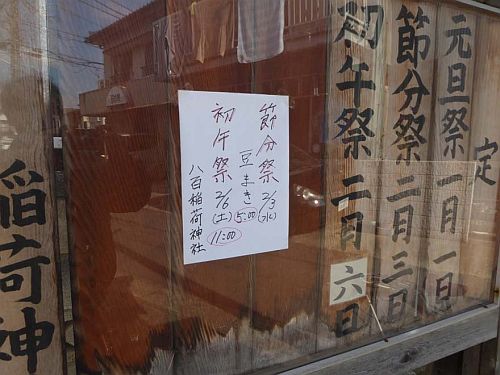 定
元旦祭 一月一日
節分祭 二月三日
初午祭 二月六日
節分祭 2/3(水)
豆まき 5:00
初午祭 2/6(土)
11:00
八百稲荷神社
稲荷神